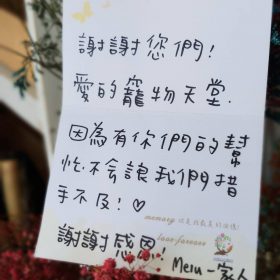 謝謝您們!
愛的寵物天堂.
因為有你們的幫
忙不會讓我們措
手不及! ♡
memory 你是我最美的回憶!
love forever
謝謝感恩! Meru 一家人